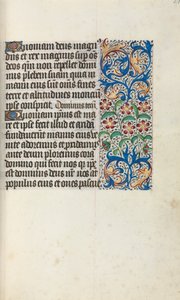 Quoniam deus magn
dns et rex magnus sup oṡ
deos qm non repellet domi
nus plebem suam quia in
manu eius sūt oms fines
terre et altitudines montiū
ipse conspicit. Dominus tecū
Quoniam ipsius est ma
re et ipse fecit illud et arida
fundaverūt manus eius ve
nite adoremus et
ante deum ploremus
domino qui fecit nos q ip
se est dominus deus nr nos aūt
populus eius et oues pascue